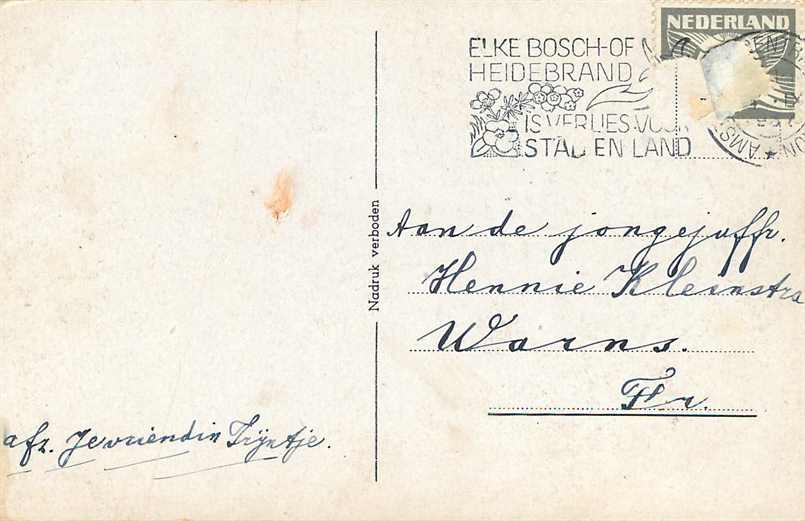 NEDERLAND
ELKE BOSCH-OF
HEIDEBRAND
IS VERLIES VOOR
STAD EN LAND
Nadruk verboden
Aan de jongejuffr.
Hennie Kleenstra
Warns.
Fr.
afz. Je vriendin Trijntje.